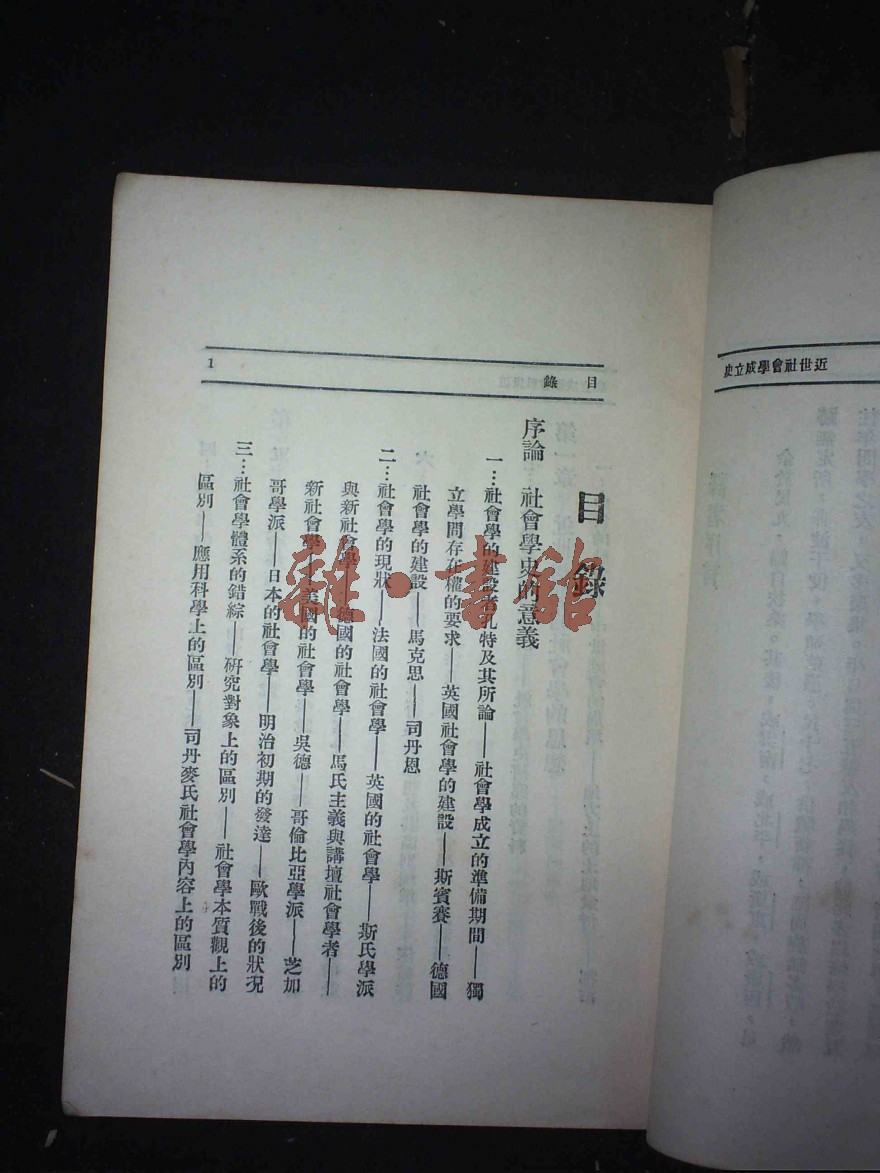 近世社會學成立史
目錄
1
目錄
序論 社會學史的意義
一…社會學的建設者孔特及其所論——社會學成立的準備期間——獨
立學問存在權的要求——英國社會學的建設——斯賓賽——德國
社會學的建設——馬克思——司丹恩
二…社會學的現狀——法國的社會學——英國的社會學——斯氏學派
與新社會學——德國的社會學——馬氏主義與講壇社會學者——
新社會學——美國的社會學——吳德——哥倫比亞學派——芝加
哥學派——日本的社會學——明治初期的發達——歐戰後的狀況
三…社會學體系的錯綜——研究對象上的區別——社會學本質觀上的
區別——應用科學上的區別——司丹麥氏社會學內容上的區別
雜·書館